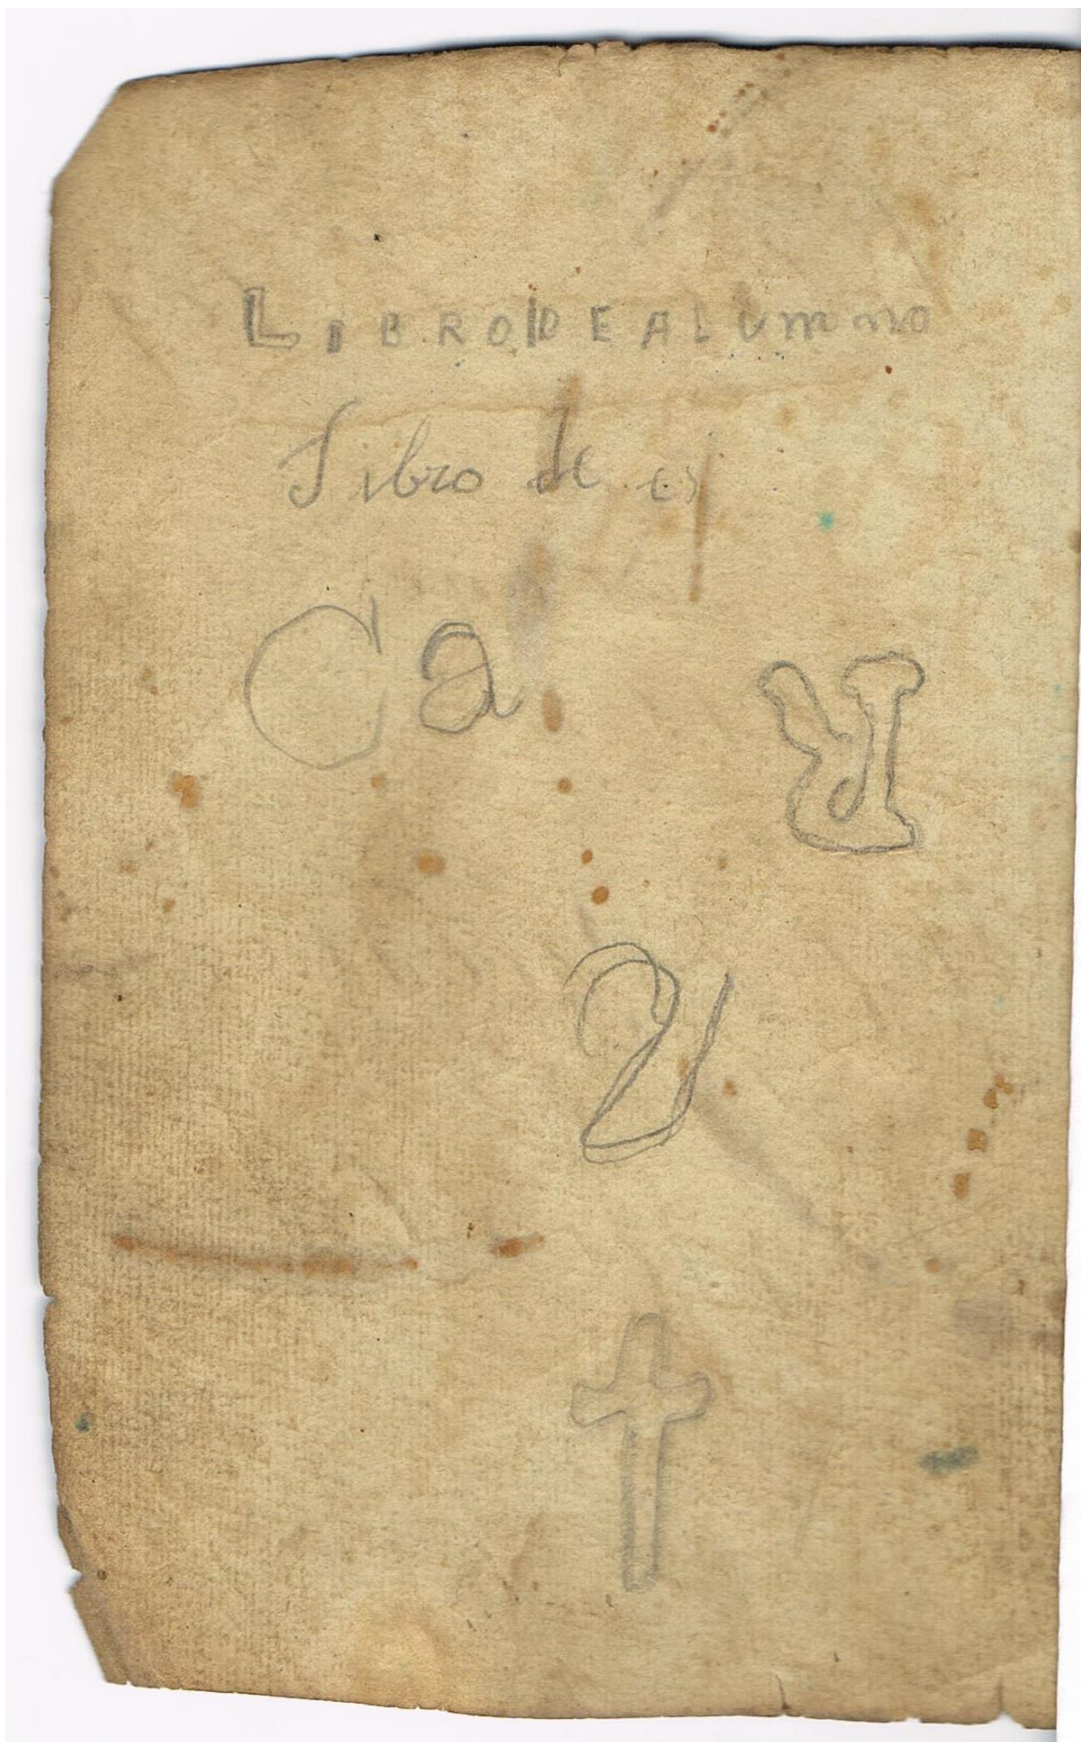 LIBRO DE ALUMNO
Libro de es
Ca
R